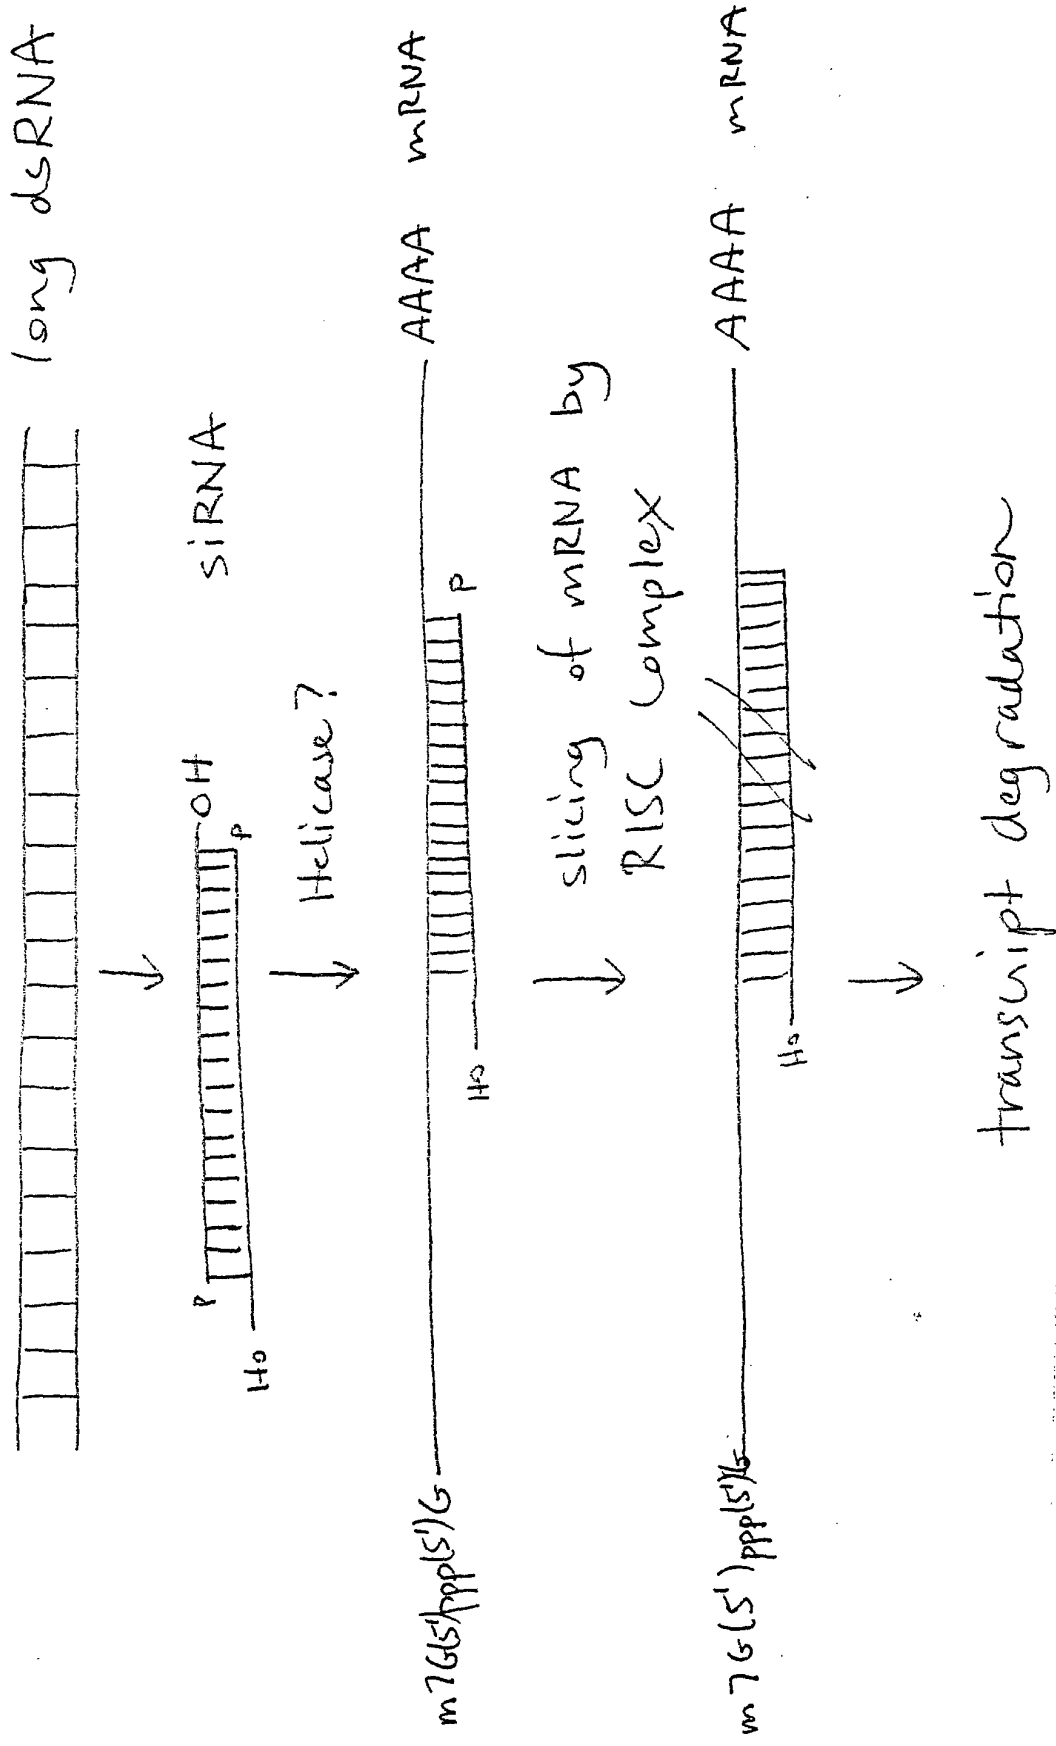 long dsRNA
P
OH
siRNA
HO
P
Helicase?
m7G(5')ppp(5')G
AAAA mRNA
HO
P
slicing of mRNA by
RISC complex
m7G(5')ppp(5')G
AAAA mRNA
HO
transcript degradation